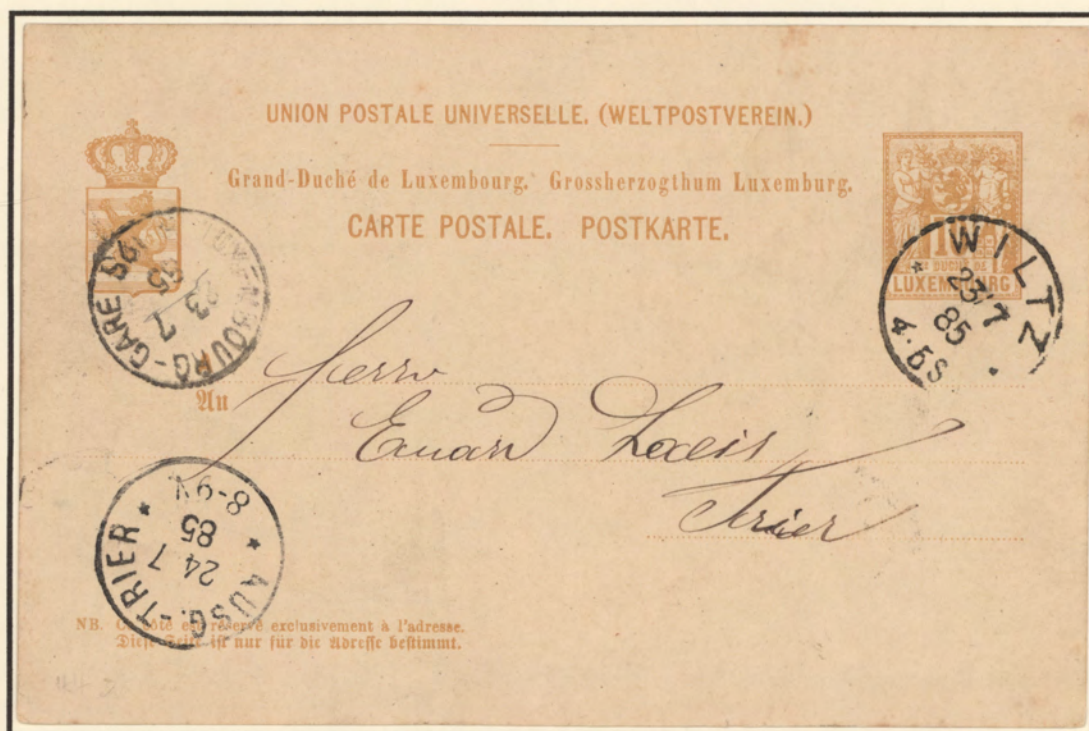 UNION POSTALE UNIVERSELLE. (WELTPOSTVEREIN.)
Grand-Duché de Luxembourg. Grossherzogthum Luxemburg.
CARTE POSTALE. POSTKARTE.
LUXEMBOURG
LUXEMBOURG-GARE
23 7
WILTZ
23/7
85
4-5S
An
Herrn
Trier
AUSG.-TRIER
24 7
85
8-9V
NB. Ce côté est réservé exclusivement à l'adresse.
Diese Seite ist nur für die Adresse bestimmt.